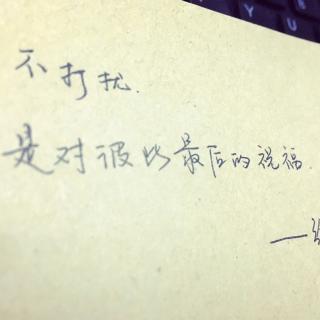 不打扰.
是对彼此最后的祝福.